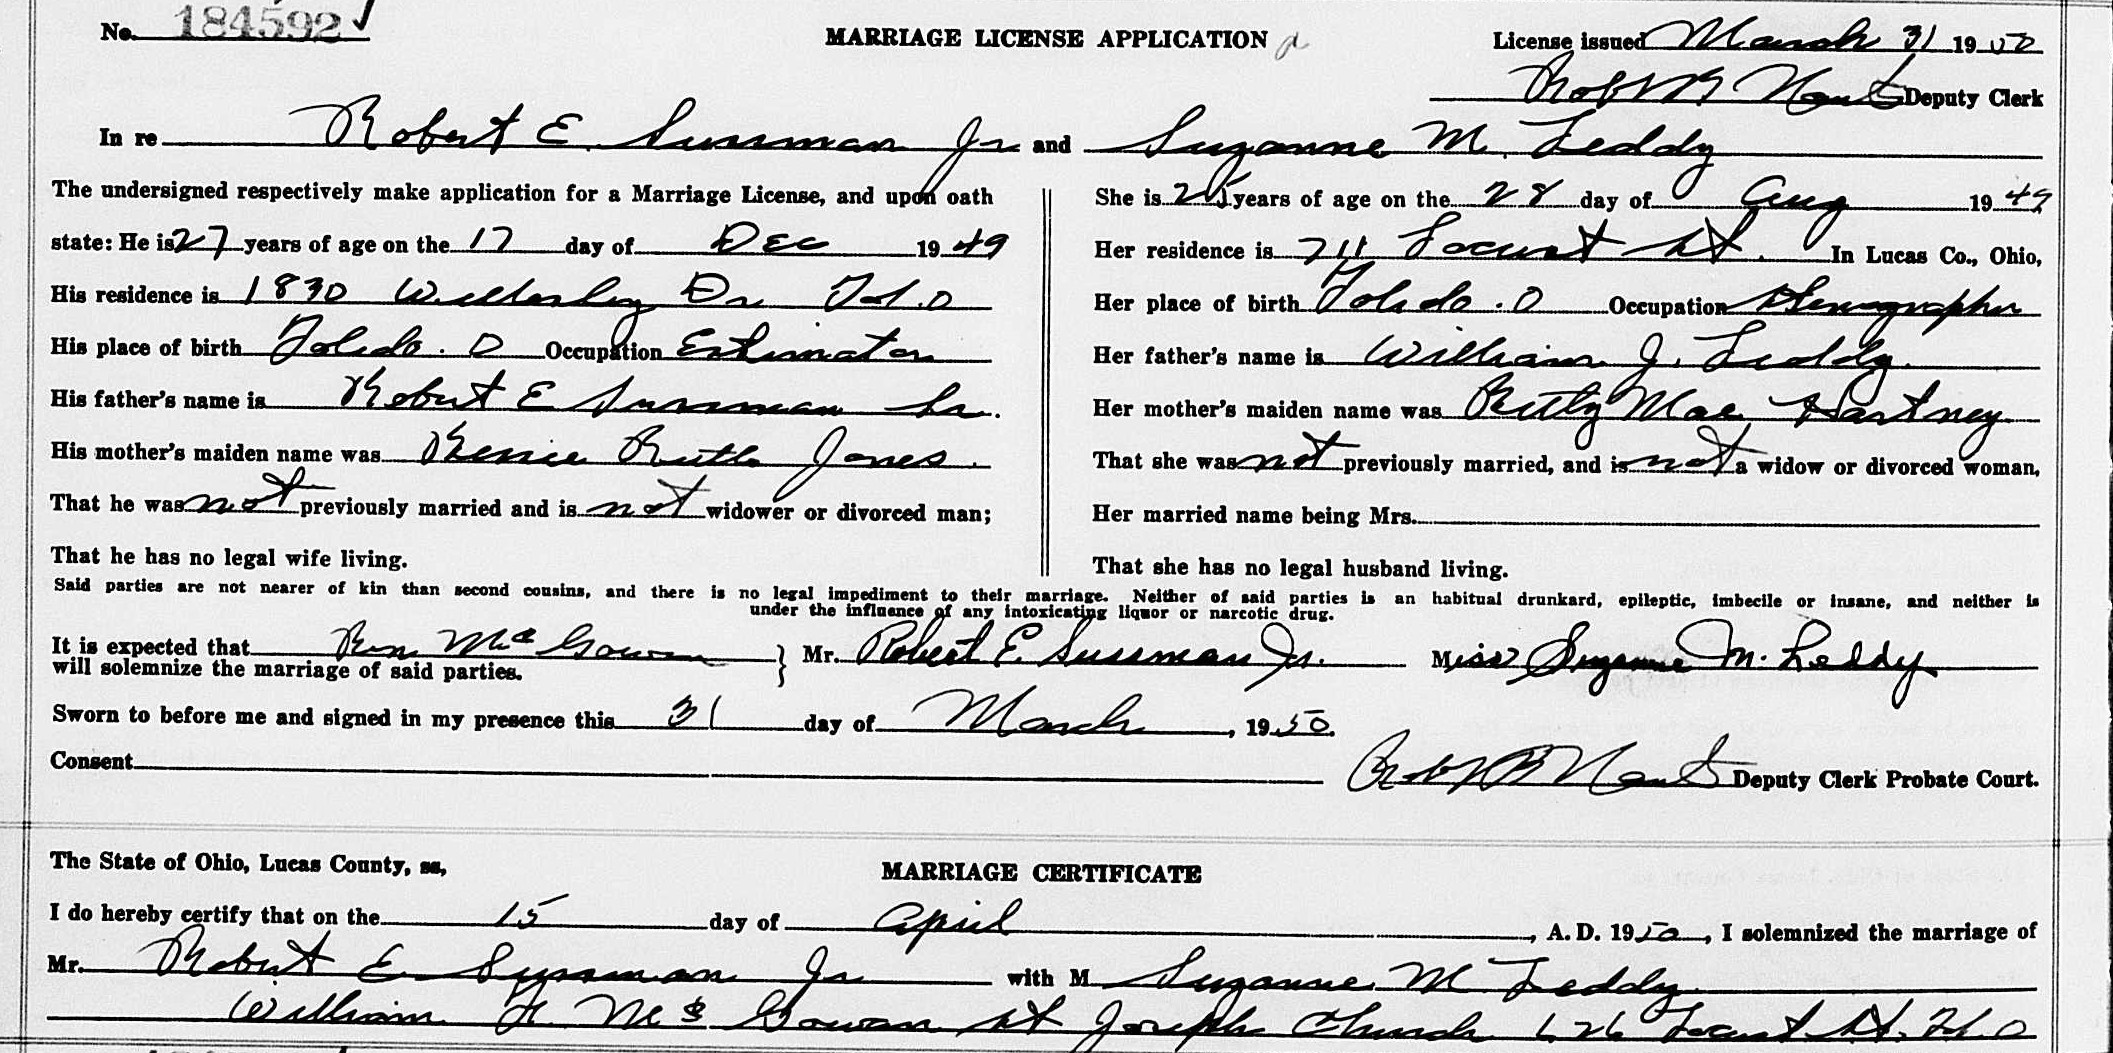 No. 184592 ✓
MARRIAGE LICENSE APPLICATION
License issued March 31 1950
Deputy Clerk
In re Robert E. Sussman Jr and Suzanne M. Leddy
The undersigned respectively make application for a Marriage License, and upon oath
state: He is 27 years of age on the 17 day of Dec 1949
His residence is 1830 Dr Tol. O
His place of birth Toledo. O Occupation Estimator
His father's name is Robert E Sussman Sr.
His mother's maiden name was Ruth Jones.
That he was not previously married and is not widower or divorced man;
That he has no legal wife living.
She is 25 years of age on the 28 day of Aug 1949
Her residence is 711 Locust St. In Lucas Co., Ohio,
Her place of birth Toledo. O Occupation Stenographer
Her father's name is William J. Leddy.
Her mother's maiden name was Mae Hartney
That she was not previously married, and is not a widow or divorced woman,
Her married name being Mrs.
That she has no legal husband living.
Said parties are not nearer of kin than second cousins, and there is no legal impediment to their marriage. Neither of said parties is an habitual drunkard, epileptic, imbecile or insane, and neither is
under the influence of any intoxicating liquor or narcotic drug.
It is expected that Mc Gowan } Mr. Robert E. Sussman Jr. Miss Suzanne M. Leddy
will solemnize the marriage of said parties.
Sworn to before me and signed in my presence this 31 day of March, 1950.
Consent Deputy Clerk Probate Court.
The State of Ohio, Lucas County, ss,
MARRIAGE CERTIFICATE
I do hereby certify that on the 15 day of April, A. D. 1950, I solemnized the marriage of
Mr. Robert E Sussman Jr with M Suzanne M Leddy
William Mc Gowan St Joseph Church 626 Locust St. Tol. O